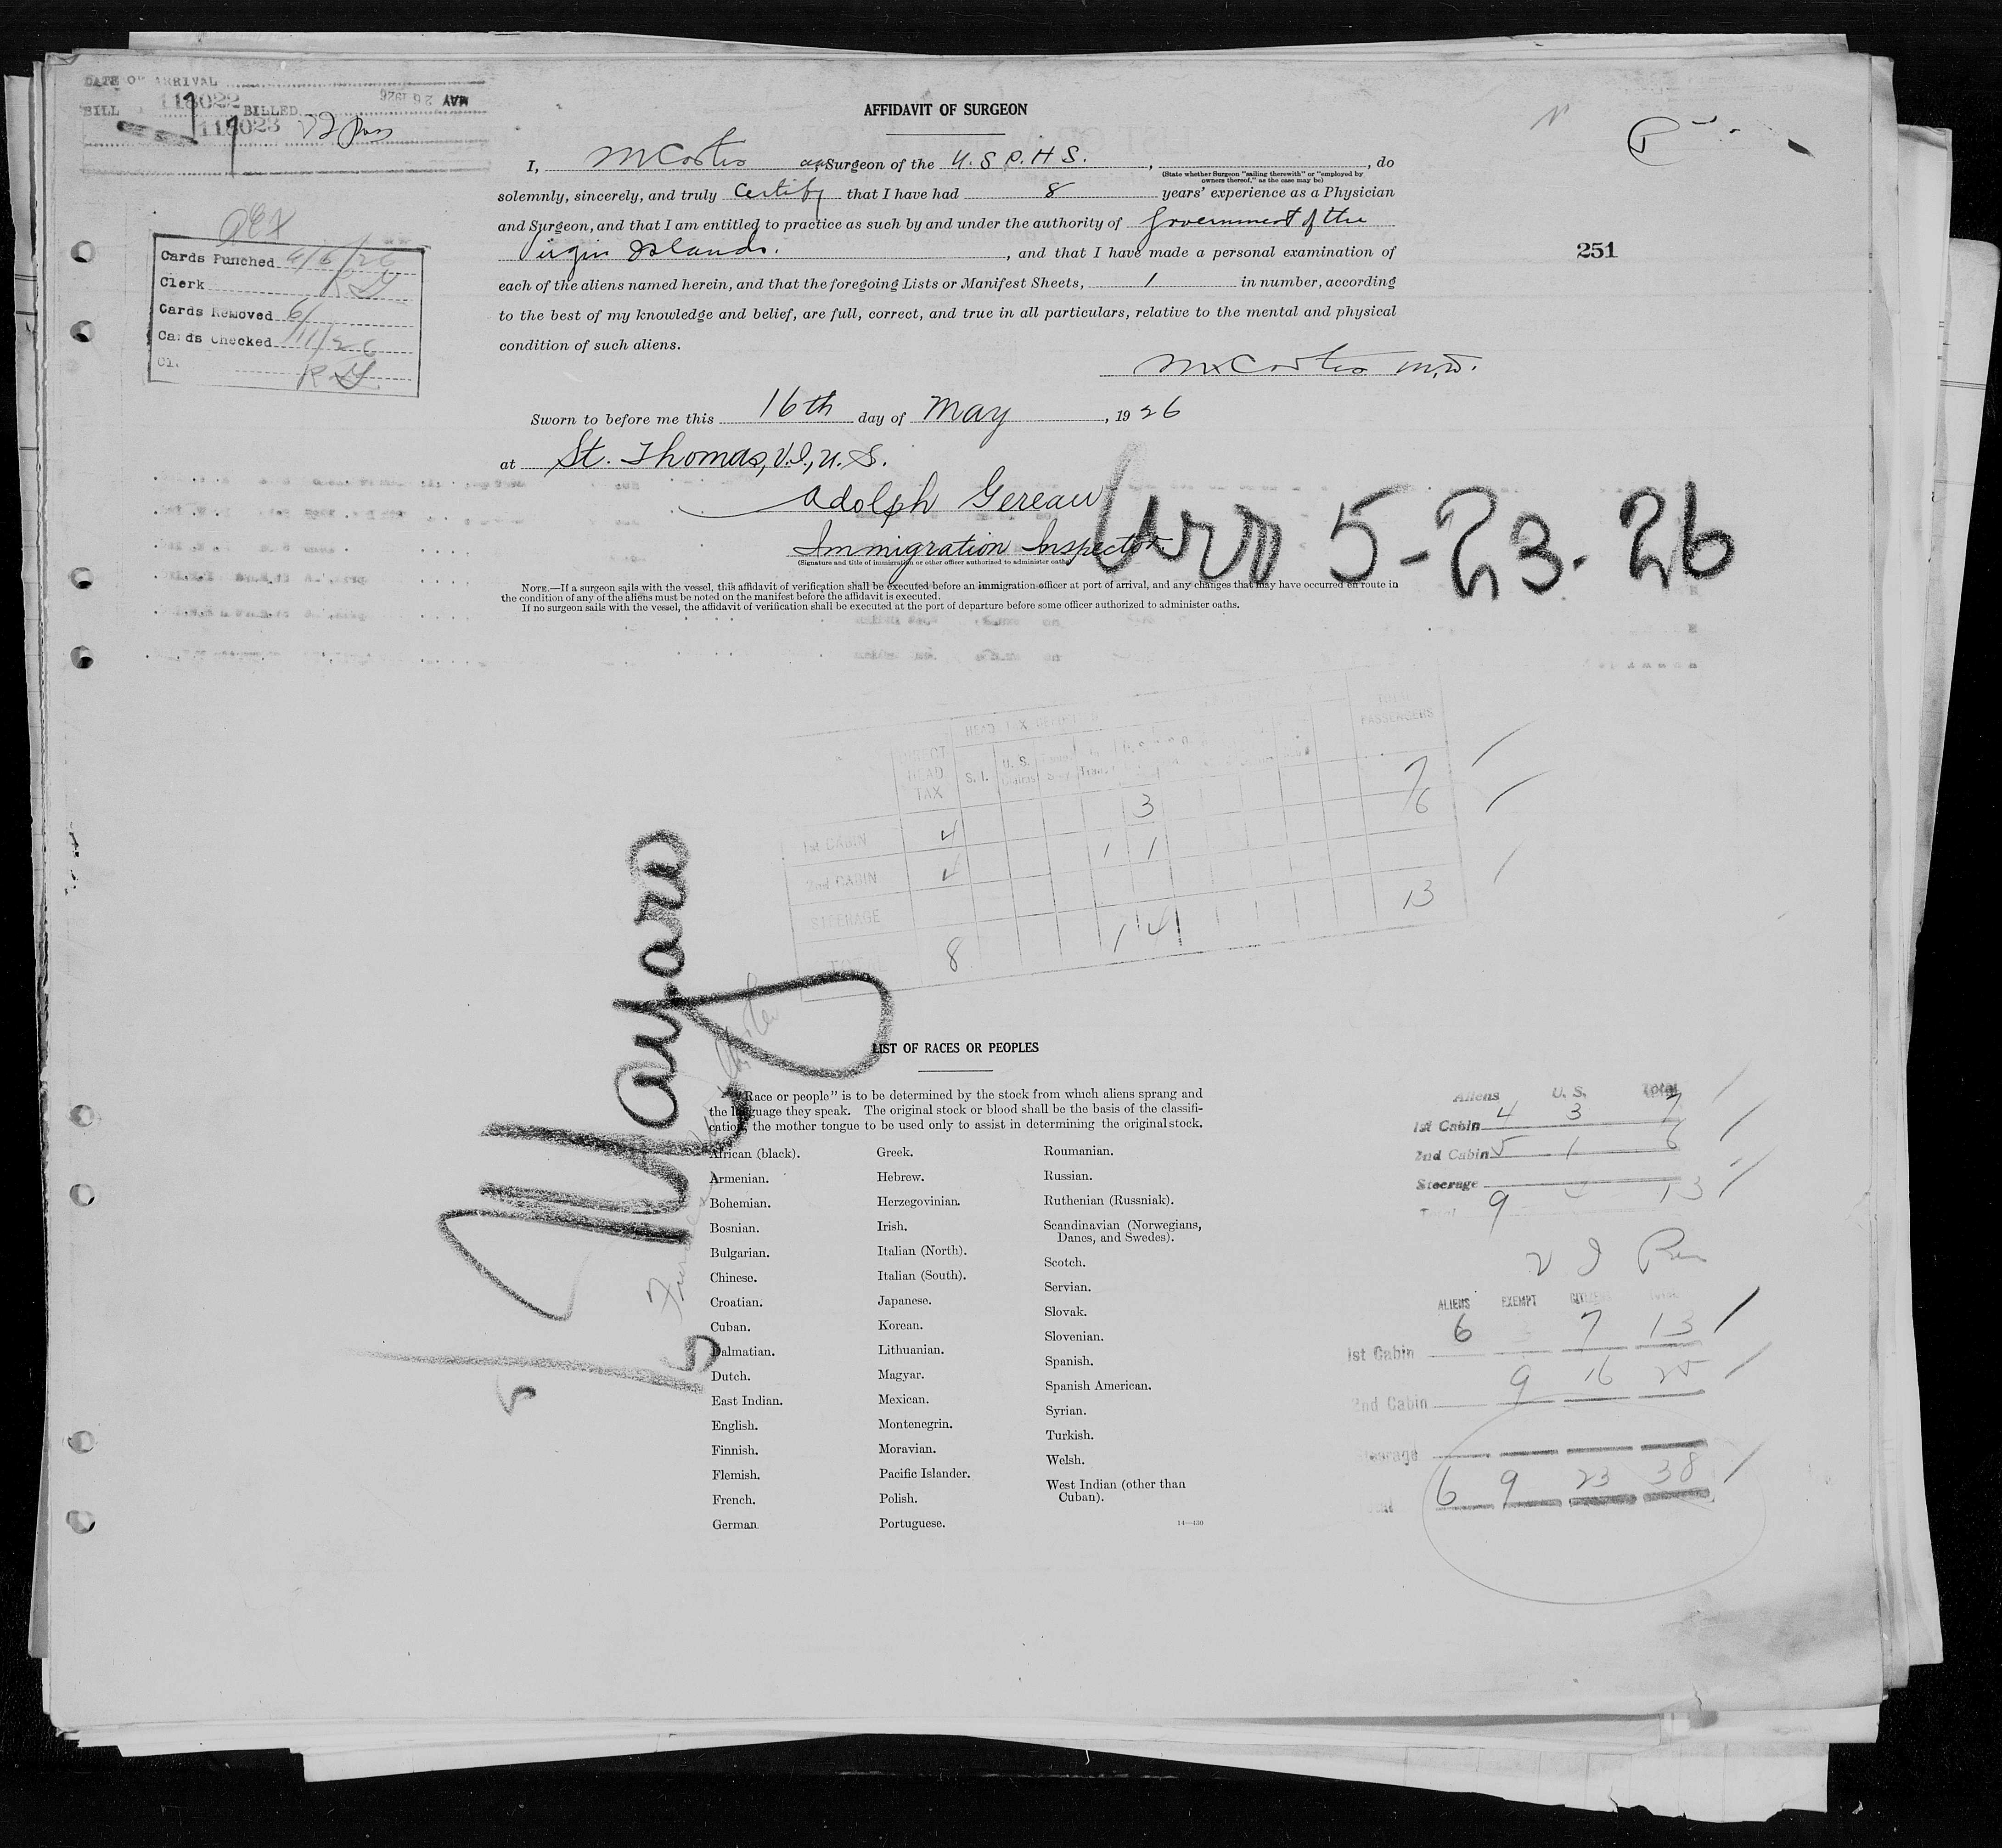 DATE OF ARRIVAL
MAY 26 1926
BILL 118022 BILLED
118023
AFFIDAVIT OF SURGEON
I, Surgeon of the U.S.P.H.S., , do
(State whether Surgeon "sailing therewith" or "employed by owners thereof," as the case may be)
solemnly, sincerely, and truly certify that I have had 8 years' experience as a Physician
and Surgeon, and that I am entitled to practice as such by and under the authority of Government of the
Virgin Islands. , and that I have made a personal examination of
251
each of the aliens named herein, and that the foregoing Lists or Manifest Sheets, 1 in number, according
to the best of my knowledge and belief, are full, correct, and true in all particulars, relative to the mental and physical
condition of such aliens.
M.D.
Cards Punched
Clerk
Cards Removed
Cards Checked
Cl.
Sworn to before me this 16th day of May, 1926
at St. Thomas, V.I., U.S.
Adolph Gereau
Immigration Inspector
(Signature and title of immigration or other officer authorized to administer oaths)
Arr 5-23-26
NOTE.—If a surgeon sails with the vessel, this affidavit of verification shall be executed before an immigration officer at port of arrival, and any changes that may have occurred en route in
the condition of any of the aliens must be noted on the manifest before the affidavit is executed.
If no surgeon sails with the vessel, the affidavit of verification shall be executed at the port of departure before some officer authorized to administer oaths.
DIRECT HEAD TAX S. I. U. S. TOTAL PASSENGERS
1st CABIN 4 3 7
2nd CABIN 4 1 1 6
STEERAGE
TOTAL 8 1 4 13
LIST OF RACES OR PEOPLES
"Race or people" is to be determined by the stock from which aliens sprang and
the language they speak. The original stock or blood shall be the basis of the classifi-
cation, the mother tongue to be used only to assist in determining the original stock.
African (black).
Armenian.
Bohemian.
Bosnian.
Bulgarian.
Chinese.
Croatian.
Cuban.
Dalmatian.
Dutch.
East Indian.
English.
Finnish.
Flemish.
French.
German
Greek.
Hebrew.
Herzegovinian.
Irish.
Italian (North).
Italian (South).
Japanese.
Korean.
Lithuanian.
Magyar.
Mexican.
Montenegrin.
Moravian.
Pacific Islander.
Polish.
Portuguese.
Roumanian.
Russian.
Ruthenian (Russniak).
Scandinavian (Norwegians,
Danes, and Swedes).
Scotch.
Servian.
Slovak.
Slovenian.
Spanish.
Spanish American.
Syrian.
Turkish.
Welsh.
West Indian (other than
Cuban).
14—430
Aliens U. S. Total
1st Cabin 4 3 7
2nd Cabin 5 1 6
Steerage
Total 9 4 13
ALIENS EXEMPT CITIZENS TOTAL
1st Cabin 6 7 13
2nd Cabin 9 16 25
Steerage
Total 6 9 23 38